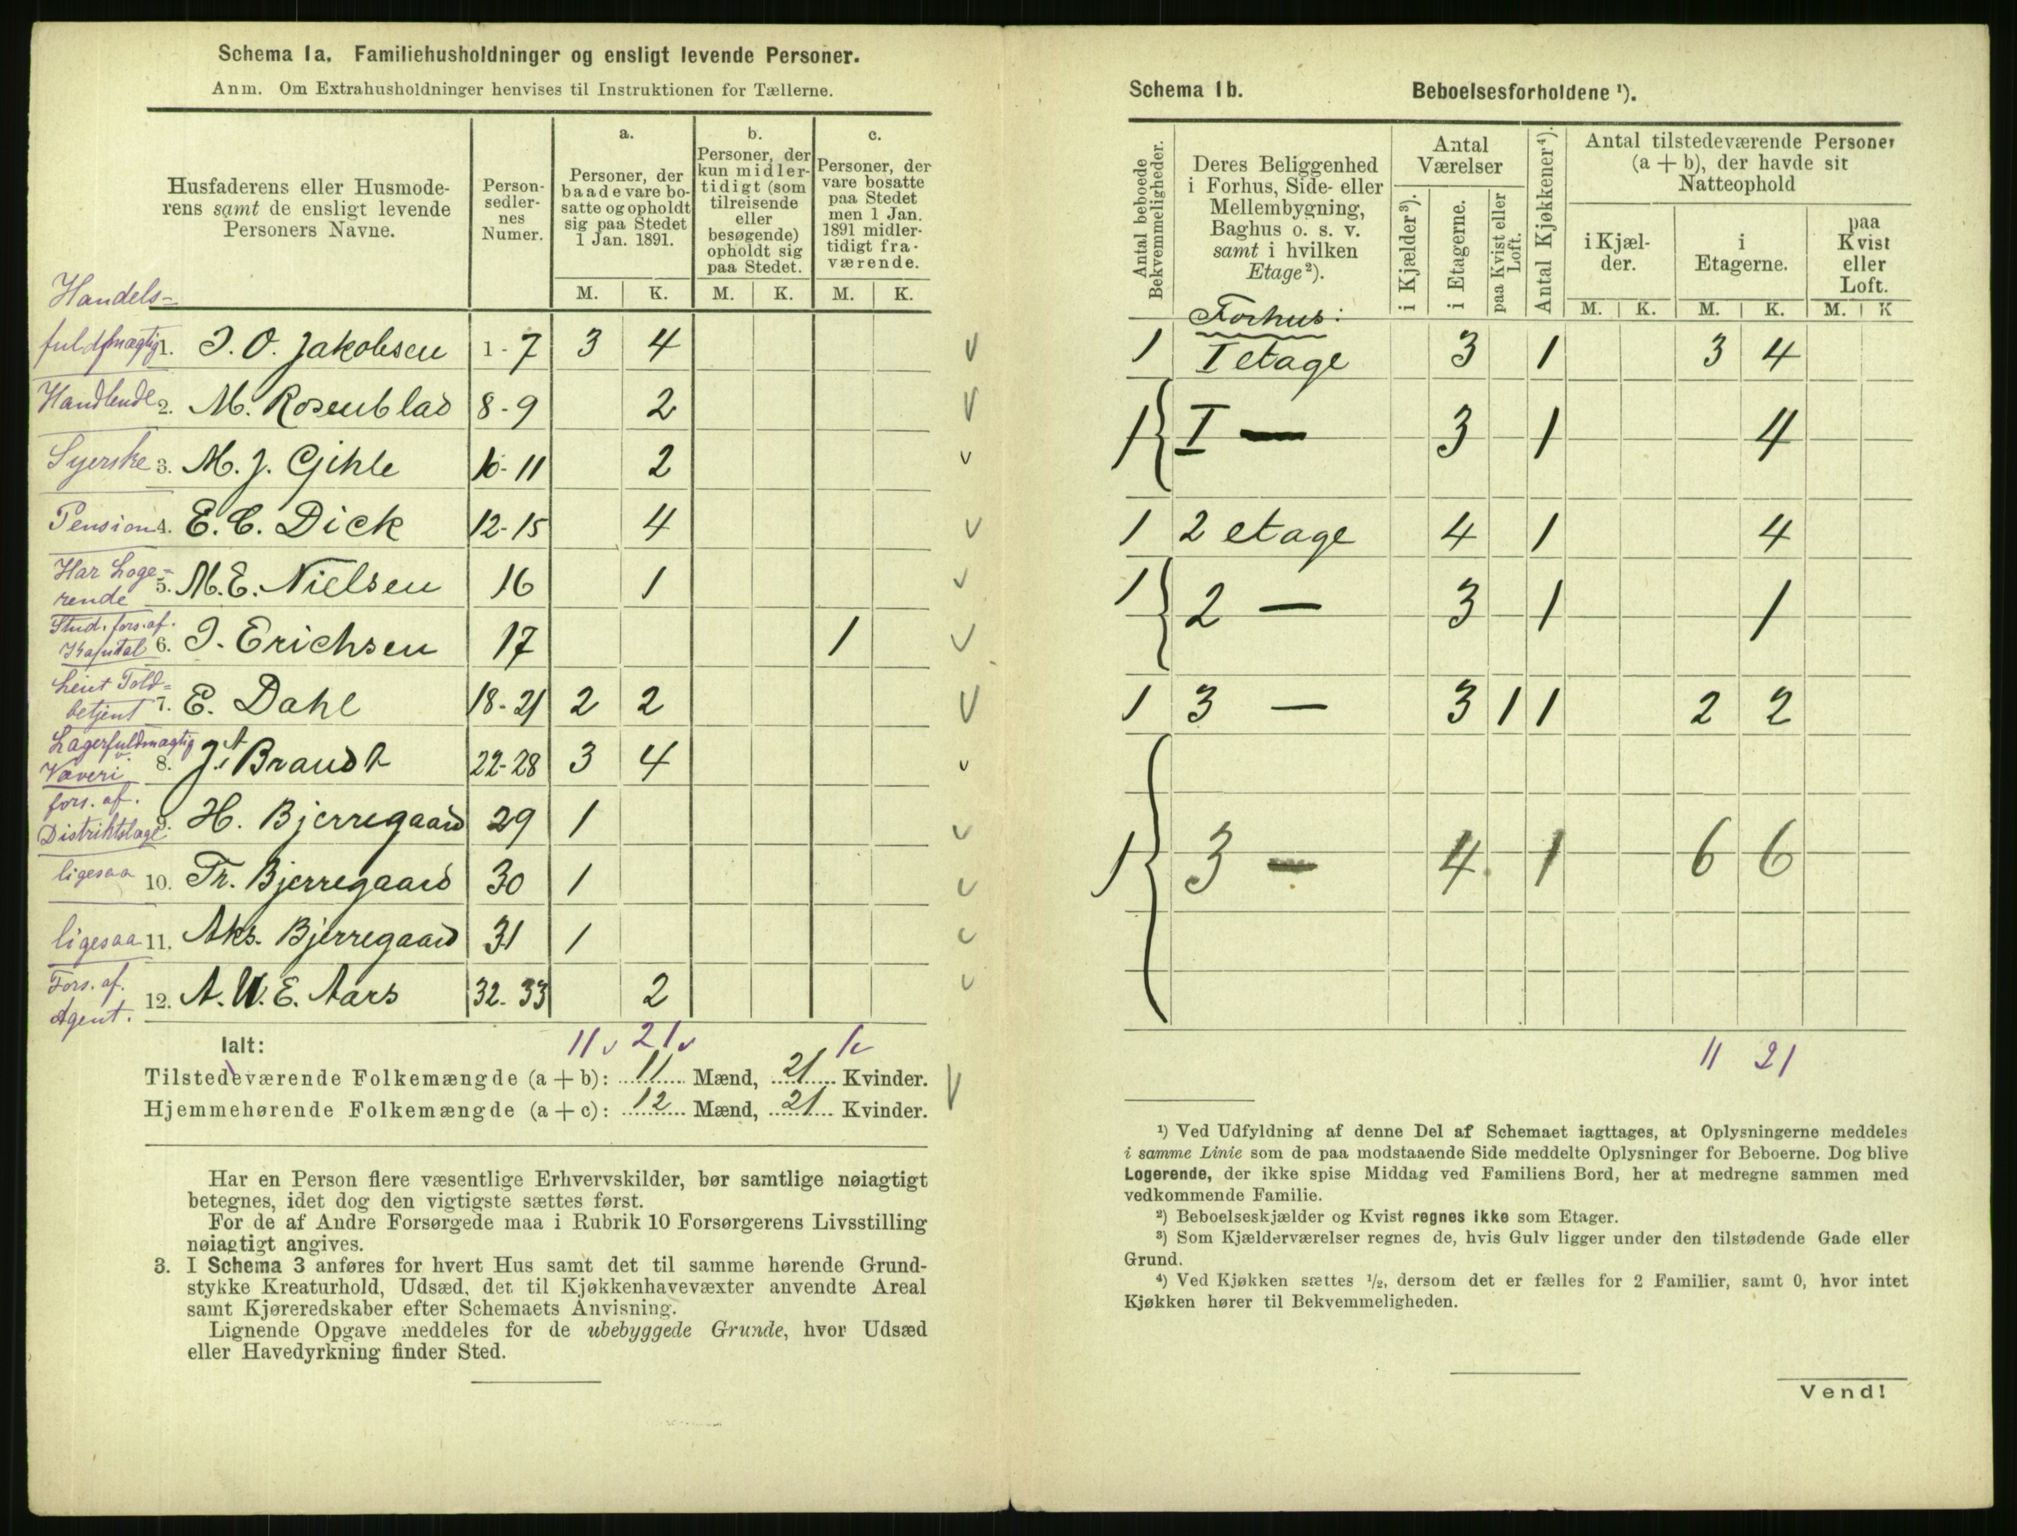 Schema 1a. Familiehusholdninger og ensligt levende Personer.
Anm. Om Extrahusholdninger henvises til Instruktionen for Tællerne.
Husfaderens eller Husmode-
rens samt de ensligt levende
Personers Navne.
Person-
sedler-
nes
Numer.
a.
Personer, der
baade vare bo-
satte og opholdt
sig paa Stedet
1 Jan. 1891.
b.
Personer, der
kun midler-
tidigt (som
tilreisende
eller
besøgende)
opholdt sig
paa Stedet.
c.
Personer, der
vare bosatte
paa Stedet
men 1 Jan.
1891 midler-
tidigt fra-
værende.
M. K. M. K. M. K.
Handels-
fuldmægtig 1. J. O. Jakobsen 1-7 3 4
Handlende 2. M. Rosenblad 8-9 2
Syerske 3. M. J. Gihle 10-11 2
Pension 4. E. C. Dick 12-15 4
Har Loge-
rende 5. M. E. Nielsen 16 1
Stud. fors. af.
Kapital 6. J. Erichsen 17 1
Leiut Told-
betjent 7. E. Dahl 18-21 2 2
Lagerfuldmægtig
Væveri 8. J. A. Brandt 22-28 3 4
fors. af.
Distriktslæge 9. H. Bjerregaard 29 1
ligesaa 10. Fr. Bjerregaard 30 1
ligesaa 11. Aks. Bjerregaard 31 1
Fors. af.
Agent. 12. A. W. E. Aars 32-33 2
11 21 1
Ialt:
Tilstedeværende Folkemængde (a + b): 11 Mænd, 21 Kvinder.
Hjemmehørende Folkemængde (a + c): 12 Mænd, 21 Kvinder.
Har en Person flere væsentlige Erhvervskilder, bør samtlige nøiagtigt
betegnes, idet dog den vigtigste sættes først.
For de af Andre Forsørgede maa i Rubrik 10 Forsørgerens Livsstilling
nøiagtigt angives.
3. I Schema 3 anføres for hvert Hus samt det til samme hørende Grund-
stykke Kreaturhold, Udsæd, det til Kjøkkenhavevæxter anvendte Areal
samt Kjøreredskaber efter Schemaets Anvisning.
Lignende Opgave meddeles for de ubebyggede Grunde, hvor Udsæd
eller Havedyrkning finder Sted.
Schema 1b. Beboelsesforholdene ¹).
Antal beboede
Bekvemmeligheder.
Deres Beliggenhed
i Forhus, Side- eller
Mellembygning,
Baghus o. s. v.
samt i hvilken
Etage ²).
Antal
Værelser
i Kjælder ³).
i Etagerne.
paa Kvist eller
Loft.
Antal Kjøkkener ⁴).
Antal tilstedeværende Personer
(a + b), der havde sit
Natteophold
i Kjæl-
der.
i
Etagerne.
paa
Kvist
eller
Loft.
M. K. M. K. M. K
Forhus:
1 I etage 3 1 3 4
1 I — 3 1 4
1 2 etage 4 1 4
1 2 — 3 1 1
1 3 — 3 1 1 2 2
1 3 — 4 1 6 6
11 21
¹) Ved Udfyldning af denne Del af Schemaet iagttages, at Oplysningerne meddeles
i samme Linie som de paa modstaaende Side meddelte Oplysninger for Beboerne. Dog blive
Logerende, der ikke spise Middag ved Familiens Bord, her at medregne sammen med
vedkommende Familie.
²) Beboelseskjælder og Kvist regnes ikke som Etager.
³) Som Kjælderværelser regnes de, hvis Gulv ligger under den tilstødende Gade eller
Grund.
⁴) Ved Kjøkken sættes ¹/₂, dersom det er fælles for 2 Familier, samt 0, hvor intet
Kjøkken hører til Bekvemmeligheden.
Vend!